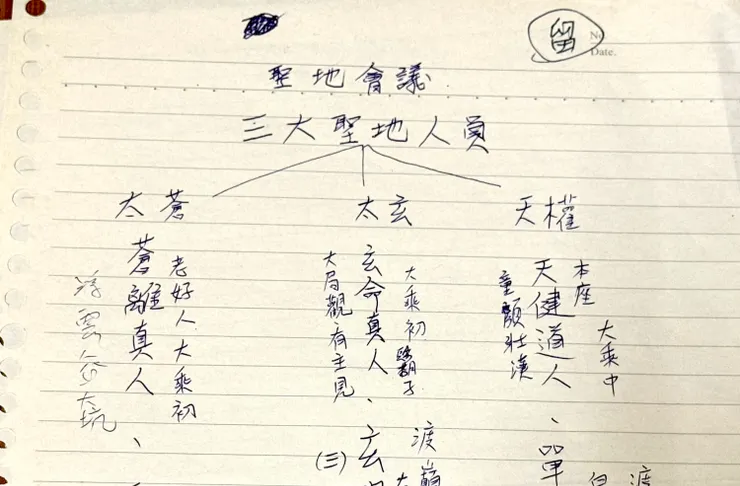 留
No
Date.
聖地會議
三大聖地人員
天權
本座 大乘中
天健道人、單
童顏壯漢
渡
太玄
大乘初 鬍子
玄命真人、玄
大局觀有主見
渡巔
(三)
太蒼
老好人大乘初
蒼離真人、
浮雲